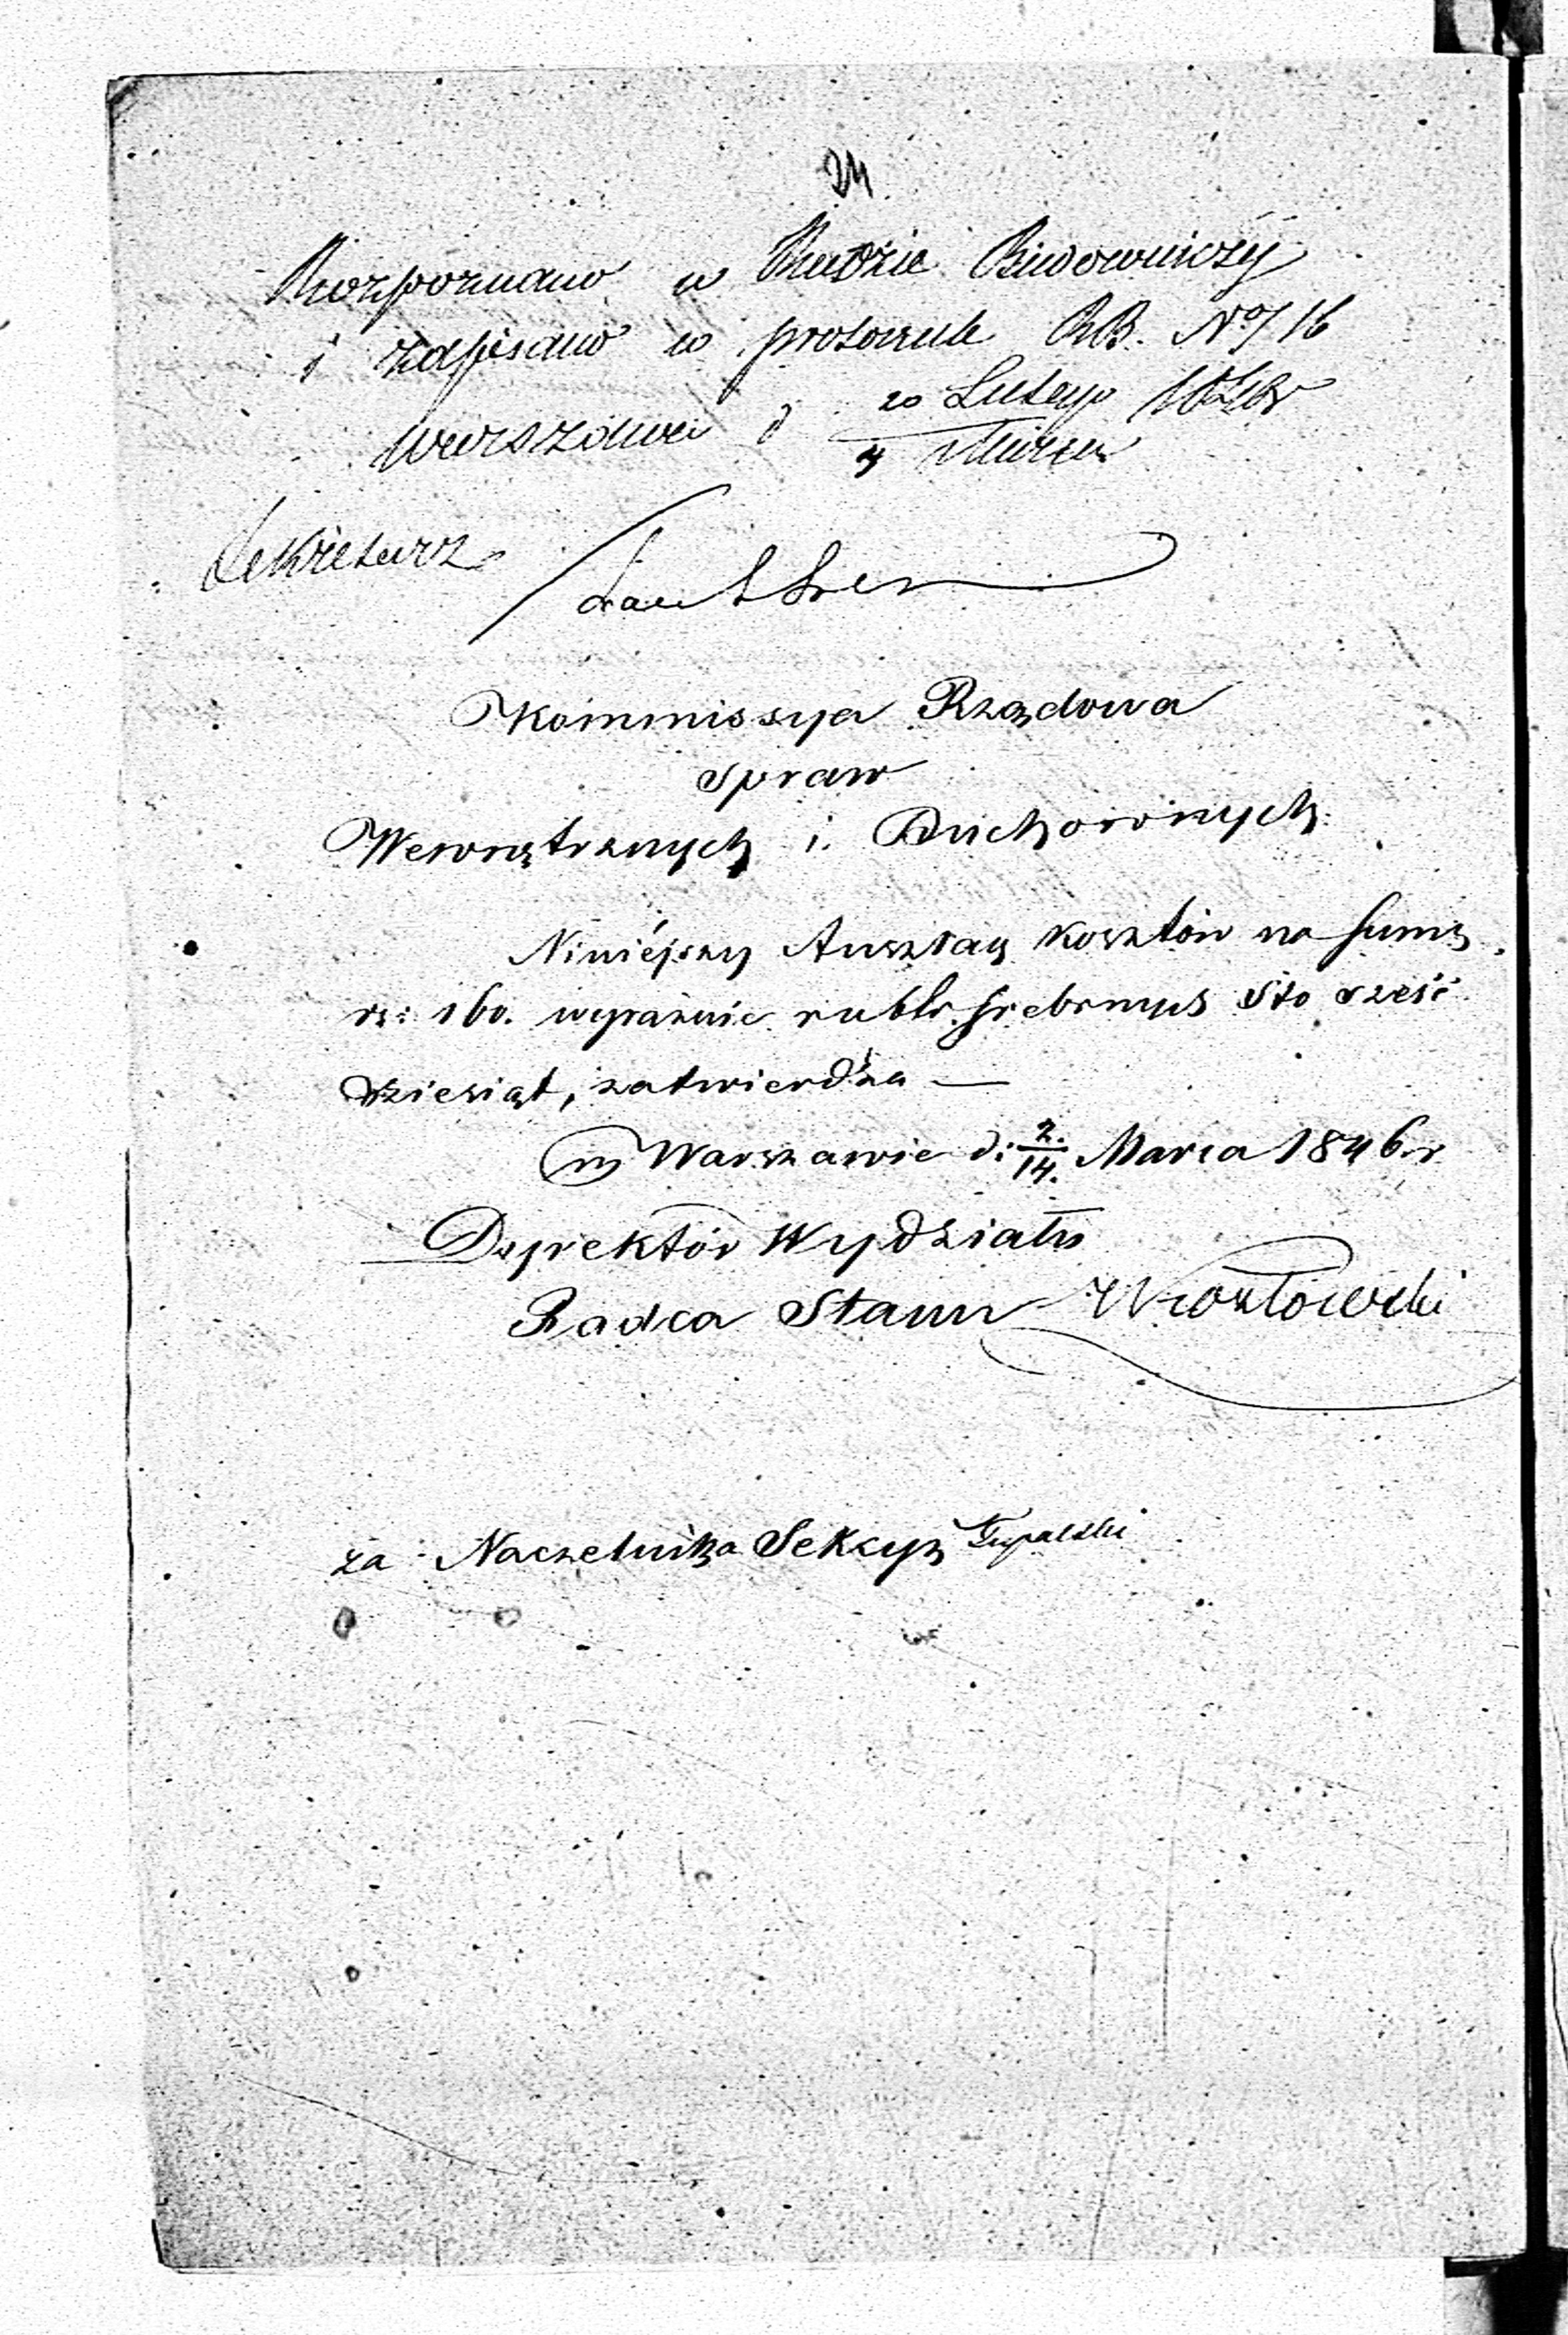 24
Rozpoznano w Radzie Budowniczéj
i zapisano w protokule RB. No 716
Warszawa d 20 Lutego 1846r
4 Marca
Sekretarz
Kommissya Rządowa
Spraw
Wewnętrznych i Duchownych
Niniéjszy Anszlag kosztów na summę
rs: 160. wyraźnie rubli srebrnych sto sześć
dziesiąt, zatwierdza —
w Warszawie d: 2./14. Marca 1846 r
Dyrektór Wydziału
Radca Stanu
za Naczelnika Sekcyi